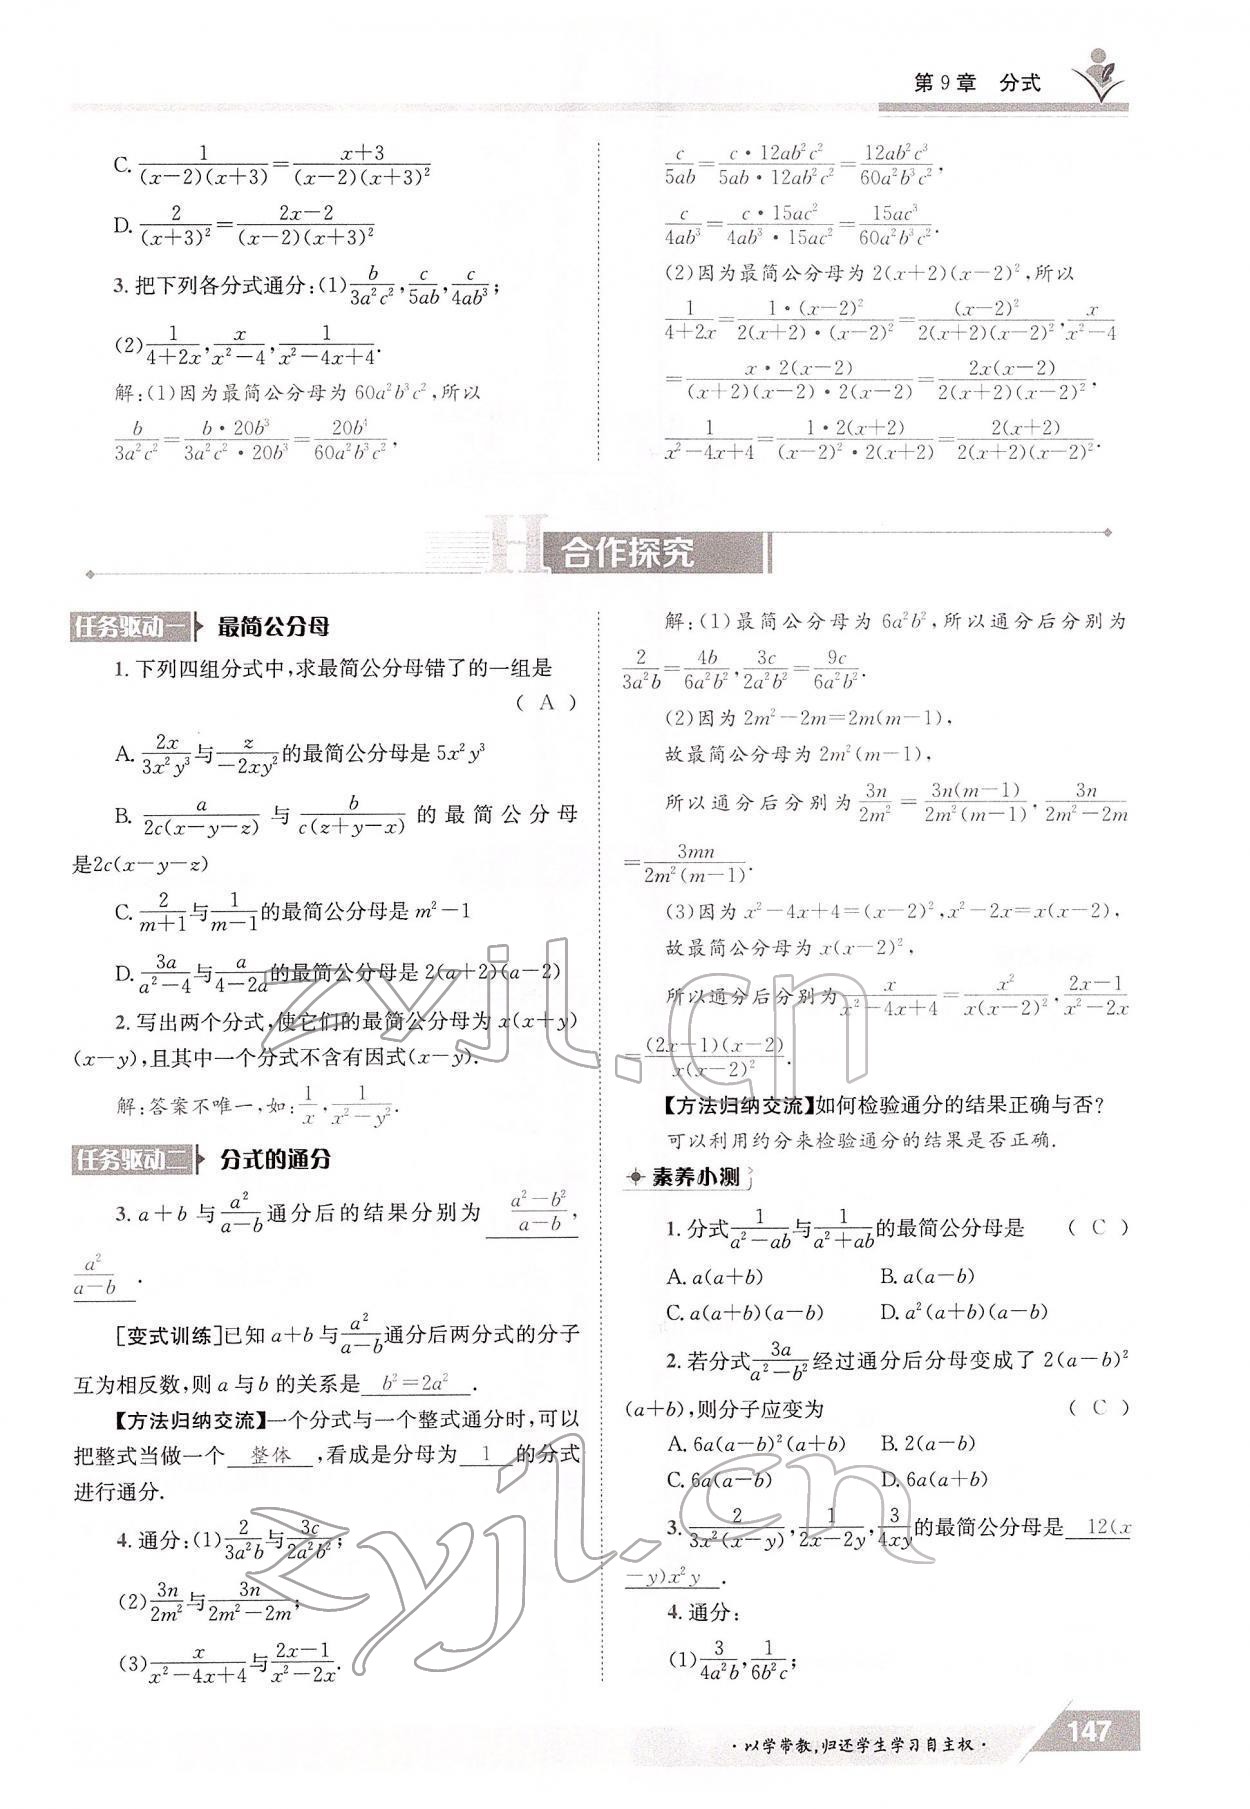 第9章 分式
C. \frac{1}{(x-2)(x+3)}=\frac{x+3}{(x-2)(x+3)^2}
D. \frac{2}{(x+3)^2}=\frac{2x-2}{(x-2)(x+3)^2}
3. 把下列各分式通分:(1)\frac{b}{3a^2c^2},\frac{c}{5ab},\frac{c}{4ab^3};
(2)\frac{1}{4+2x},\frac{x}{x^2-4},\frac{1}{x^2-4x+4}.
解:(1)因为最简公分母为 60a^2b^3c^2,所以
\frac{b}{3a^2c^2}=\frac{b·20b^3}{3a^2c^2·20b^3}=\frac{20b^4}{60a^2b^3c^2},
\frac{c}{5ab}=\frac{c·12ab^2c^2}{5ab·12ab^2c^2}=\frac{12ab^2c^3}{60a^2b^3c^2},
\frac{c}{4ab^3}=\frac{c·15ac^2}{4ab^3·15ac^2}=\frac{15ac^3}{60a^2b^3c^2}.
(2)因为最简公分母为 2(x+2)(x-2)^2,所以
\frac{1}{4+2x}=\frac{1·(x-2)^2}{2(x+2)·(x-2)^2}=\frac{(x-2)^2}{2(x+2)(x-2)^2},\frac{x}{x^2-4}
=\frac{x·2(x-2)}{(x+2)(x-2)·2(x-2)}=\frac{2x(x-2)}{2(x+2)(x-2)^2},
\frac{1}{x^2-4x+4}=\frac{1·2(x+2)}{(x-2)^2·2(x+2)}=\frac{2(x+2)}{2(x+2)(x-2)^2}.
H 合作探究
任务驱动一 最简公分母
1. 下列四组分式中,求最简公分母错了的一组是
( A )
A. \frac{2x}{3x^2y^3}与\frac{z}{-2xy^2}的最简公分母是 5x^2y^3
B. \frac{a}{2c(x-y-z)} 与 \frac{b}{c(z+y-x)} 的最简公分母
是2c(x-y-z)
C. \frac{2}{m+1}与\frac{1}{m-1}的最简公分母是 m^2-1
D. \frac{3a}{a^2-4}与\frac{a}{4-2a}的最简公分母是 2(a+2)(a-2)
2. 写出两个分式,使它们的最简公分母为 x(x+y)
(x-y),且其中一个分式不含有因式(x-y).
解:答案不唯一,如:\frac{1}{x},\frac{1}{x^2-y^2}.
任务驱动二 分式的通分
3. a+b 与\frac{a^2}{a-b}通分后的结果分别为 \frac{a^2-b^2}{a-b},
\frac{a^2}{a-b}.
[变式训练]已知 a+b 与\frac{a^2}{a-b}通分后两分式的分子
互为相反数,则 a 与 b 的关系是 b^2=2a^2 .
【方法归纳交流】一个分式与一个整式通分时,可以
把整式当做一个 整体 ,看成是分母为 1 的分式
进行通分.
4. 通分:(1)\frac{2}{3a^2b}与\frac{3c}{2a^2b^2};
(2)\frac{3n}{2m^2}与\frac{3n}{2m^2-2m};
(3)\frac{x}{x^2-4x+4}与\frac{2x-1}{x^2-2x}.
解:(1)最简公分母为 6a^2b^2,所以通分后分别为
\frac{2}{3a^2b}=\frac{4b}{6a^2b^2},\frac{3c}{2a^2b^2}=\frac{9c}{6a^2b^2}.
(2)因为 2m^2-2m=2m(m-1),
故最简公分母为 2m^2(m-1),
所以通分后分别为\frac{3n}{2m^2}=\frac{3n(m-1)}{2m^2(m-1)},\frac{3n}{2m^2-2m}
=\frac{3mn}{2m^2(m-1)}.
(3)因为 x^2-4x+4=(x-2)^2,x^2-2x=x(x-2),
故最简公分母为 x(x-2)^2,
所以通分后分别为\frac{x}{x^2-4x+4}=\frac{x^2}{x(x-2)^2},\frac{2x-1}{x^2-2x}
=\frac{(2x-1)(x-2)}{x(x-2)^2}.
【方法归纳交流】如何检验通分的结果正确与否?
可以利用约分来检验通分的结果是否正确.
素养小测
1. 分式\frac{1}{a^2-ab}与\frac{1}{a^2+ab}的最简公分母是 ( C )
A. a(a+b) B. a(a-b)
C. a(a+b)(a-b) D. a^2(a+b)(a-b)
2. 若分式\frac{3a}{a^2-b^2}经过通分后分母变成了 2(a-b)^2
(a+b),则分子应变为 ( C )
A. 6a(a-b)^2(a+b) B. 2(a-b)
C. 6a(a-b) D. 6a(a+b)
3. \frac{2}{3x^2(x-y)},\frac{1}{2x-2y},\frac{3}{4xy}的最简公分母是 12(x
-y)x^2y .
4. 通分:
(1)\frac{3}{4a^2b},\frac{1}{6b^2c};
·以学带教,归还学生学习自主权·
147
zyjl.cn
zyjl.cn